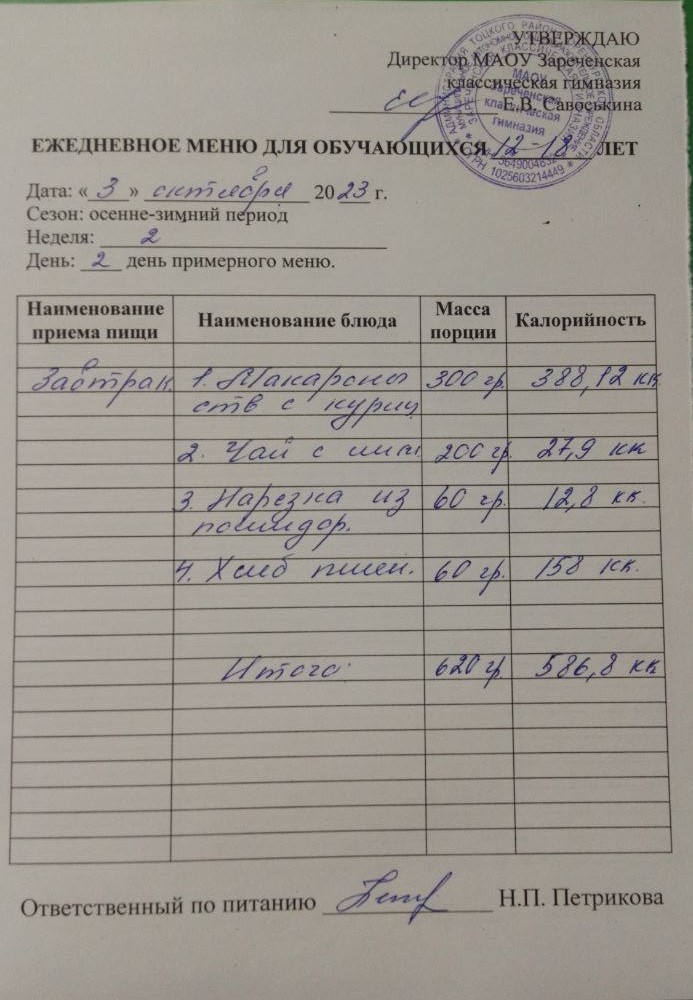 УТВЕРЖДАЮ
Директор МАОУ Зареченская
классическая гимназия
Е.В. Савоськина
МАОУ
Зареченская
классическая
гимназия
ОГРН 1025603214449
ЕЖЕДНЕВНОЕ МЕНЮ ДЛЯ ОБУЧАЮЩИХСЯ 12-18 ЛЕТ
Дата: «3» октября 2023 г.
Сезон: осенне-зимний период
Неделя: 2
День: 2 день примерного меню.
Наименование приема пищи Наименование блюда Масса порции Калорийность
Завтрак. 1. Макароны 300 гр. 388,12 кк
отв с куриц
2. Чай с 200 гр. 27,9 кк
3. Нарезка из 60 гр. 12,8 кк.
помидор.
4. Хлеб пшен. 60 гр. 158 кк.
Итого: 620 гр. 586,8 кк
Ответственный по питанию Н.П. Петрикова